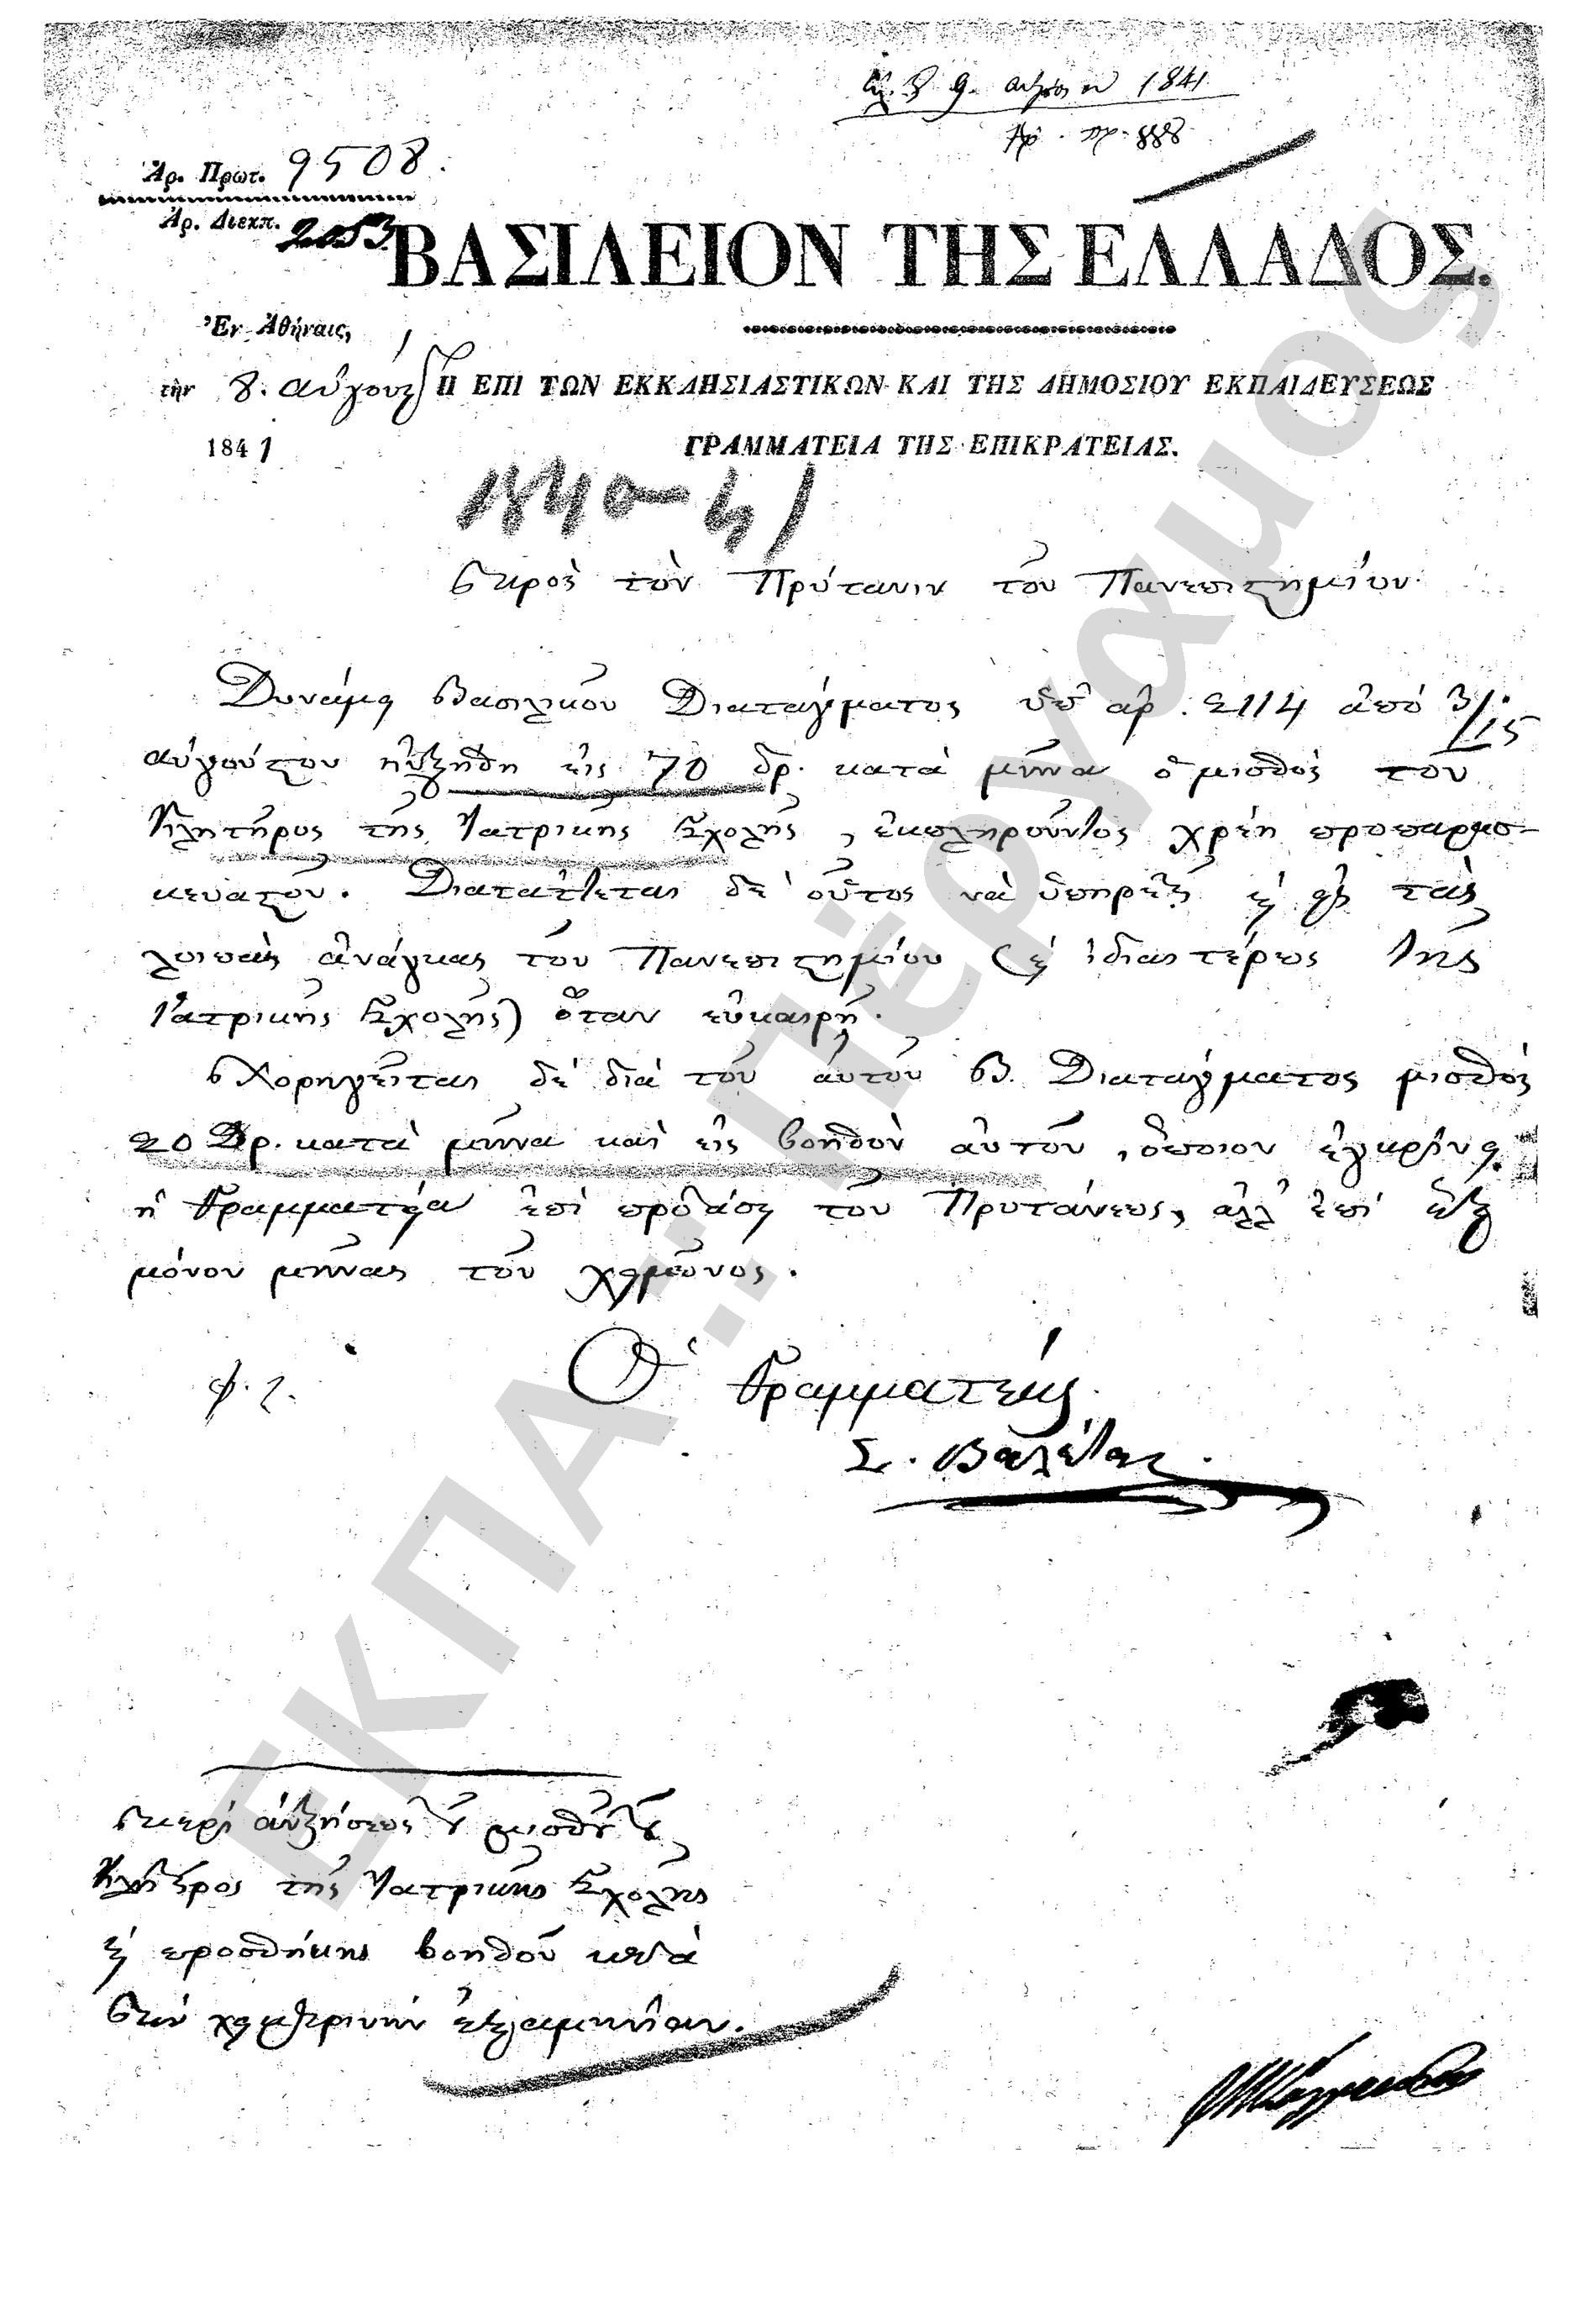 9. 1841
Ἀρ. Πρωτ. 9508.
Ἀρ. Διεκπ. 2053
ΒΑΣΙΛΕΙΟΝ ΤΗΣ ΕΛΛΑΔΟΣ.
Ἐν Ἀθήναις,
τὴν 8. αὐγούστ
Η ΕΠΙ ΤΩΝ ΕΚΚΛΗΣΙΑΣΤΙΚΩΝ ΚΑΙ ΤΗΣ ΔΗΜΟΣΙΟΥ ΕΚΠΑΙΔΕΥΣΕΩΣ
1841
ΓΡΑΜΜΑΤΕΙΑ ΤΗΣ ΕΠΙΚΡΑΤΕΙΑΣ.
1840-41
πρὸς τὸν Πρύτανιν τοῦ Πανεπιστημίου.
Δυνάμει Βασιλικοῦ Διατάγματος ὑπ' ἀρ. 2114 ἀπό 3/15
αὐγούστου ηὐξήθη εἰς 70 δρ. κατὰ μῆνα ὁ μισθὸς τοῦ
Κλητῆρος τῆς Ἰατρικῆς Σχολῆς, ἐκπληροῦντος χρέη προπαρασ-
κευαστοῦ. Διατάττεται δὲ οὗτος νὰ ὑπηρετῇ καὶ εἰς τὰς
λοιπὰς ἀνάγκας τοῦ Πανεπιστημίου (καὶ ἰδιαιτέρως τῆς
Ἰατρικῆς Σχολῆς) ὅταν εὐκαιρῇ.
Χορηγεῖται δὲ διὰ τοῦ αὐτοῦ Β. Διατάγματος μισθὸς
20 Δρ. κατὰ μῆνα καὶ εἰς βοηθὸν αὐτοῦ, ὅποιον ἐγκρίνει
ἡ Γραμματεία ἐπὶ προτάσει τοῦ Πρυτάνεως, ἀλλ' ἐπὶ ἓξ
μόνον μῆνας τοῦ χειμῶνος.
Ὁ Γραμματεύς
Σ. Βαλέτας
περὶ αὐξήσεως τοῦ μισθοῦ τοῦ
Κλητῆρος τῆς Ἰατρικῆς Σχολῆς
καὶ προσθήκης βοηθοῦ κατὰ
τὴν χειμερινὴν ἑξαμηνίαν.
ΕΚΠΑ... Πέργαμος